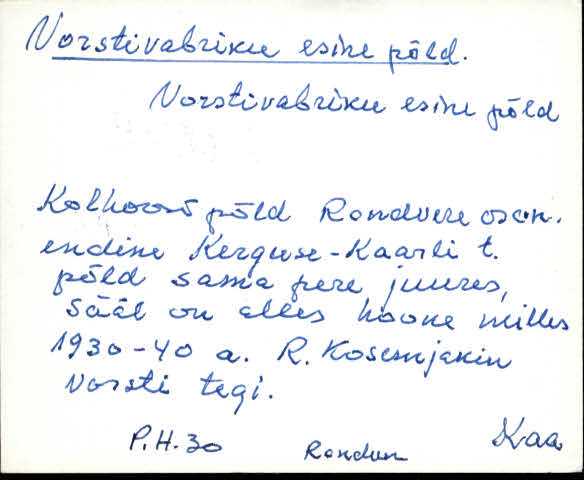 Vorstivabriku esine põld.
Vorstivabriku esine põld
Kolhoosi põld Rondvere osak.
endine Kerguse-Kaarli t.
põld sama pere juures,
sääl on alles hoone milles
1930-40 a. R. Kosemjakin
vorsti tegi.
P.H. 30 Kaa